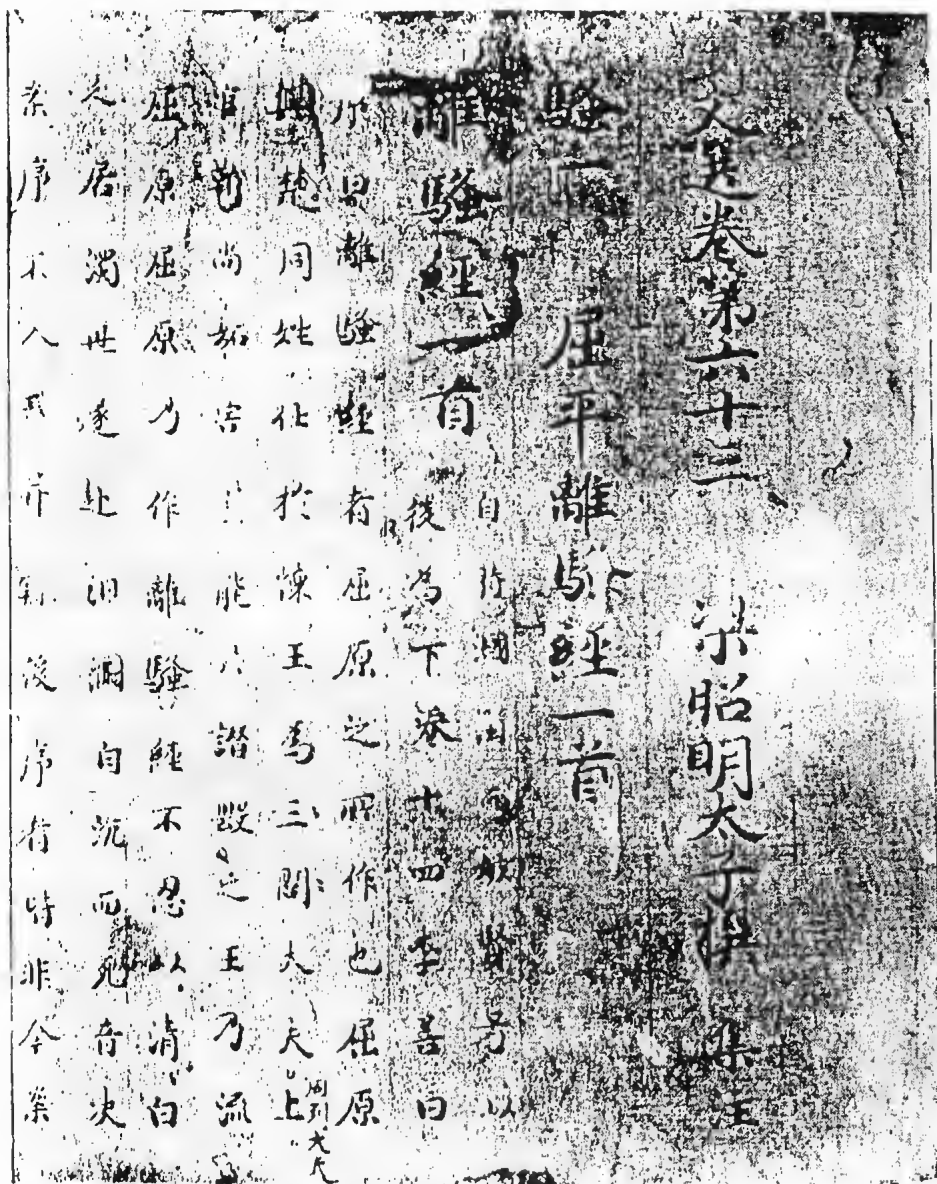 文選卷第六十三 梁昭明太子撰 集注
騷一 屈平離騷經一首
離騷經一首
自時溷濁而嫉賢方以
後為下卷十四李善曰
序曰離騷經者屈原之所作也屈原
與楚同姓仕於懷王為三閭大夫上
周列大夫
官勒尚妬害其能共譖毀之王乃流
屈原屈原乃作離騷經不忍以清白
久居濁世遂赴汨淵自沉而死音决
案序不入或并錄後序者皆非今案